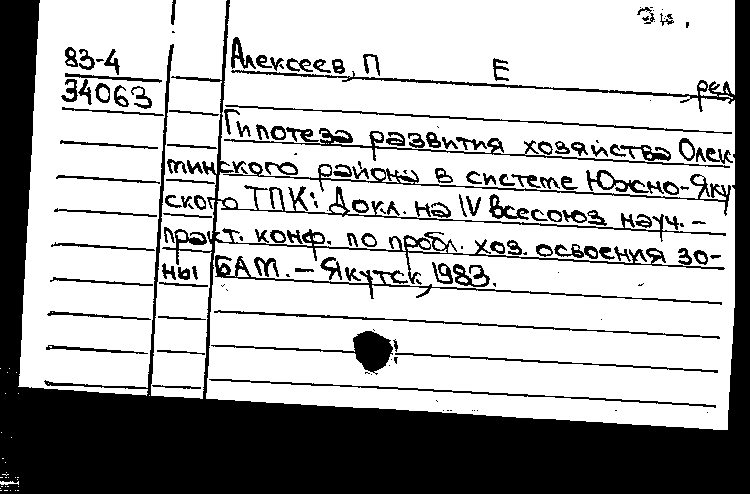 Эк.
83-4
34063
Алексеев, П Е
, ред
Гипотеза развития хозяйства Олек-
тинского района в системе Южно-Яку
ского ТПК: Докл. на IV Всесоюз. науч.-
практ. конф. по пробл. хоз. освоения зо-
ны БАМ. - Якутск, 1983.